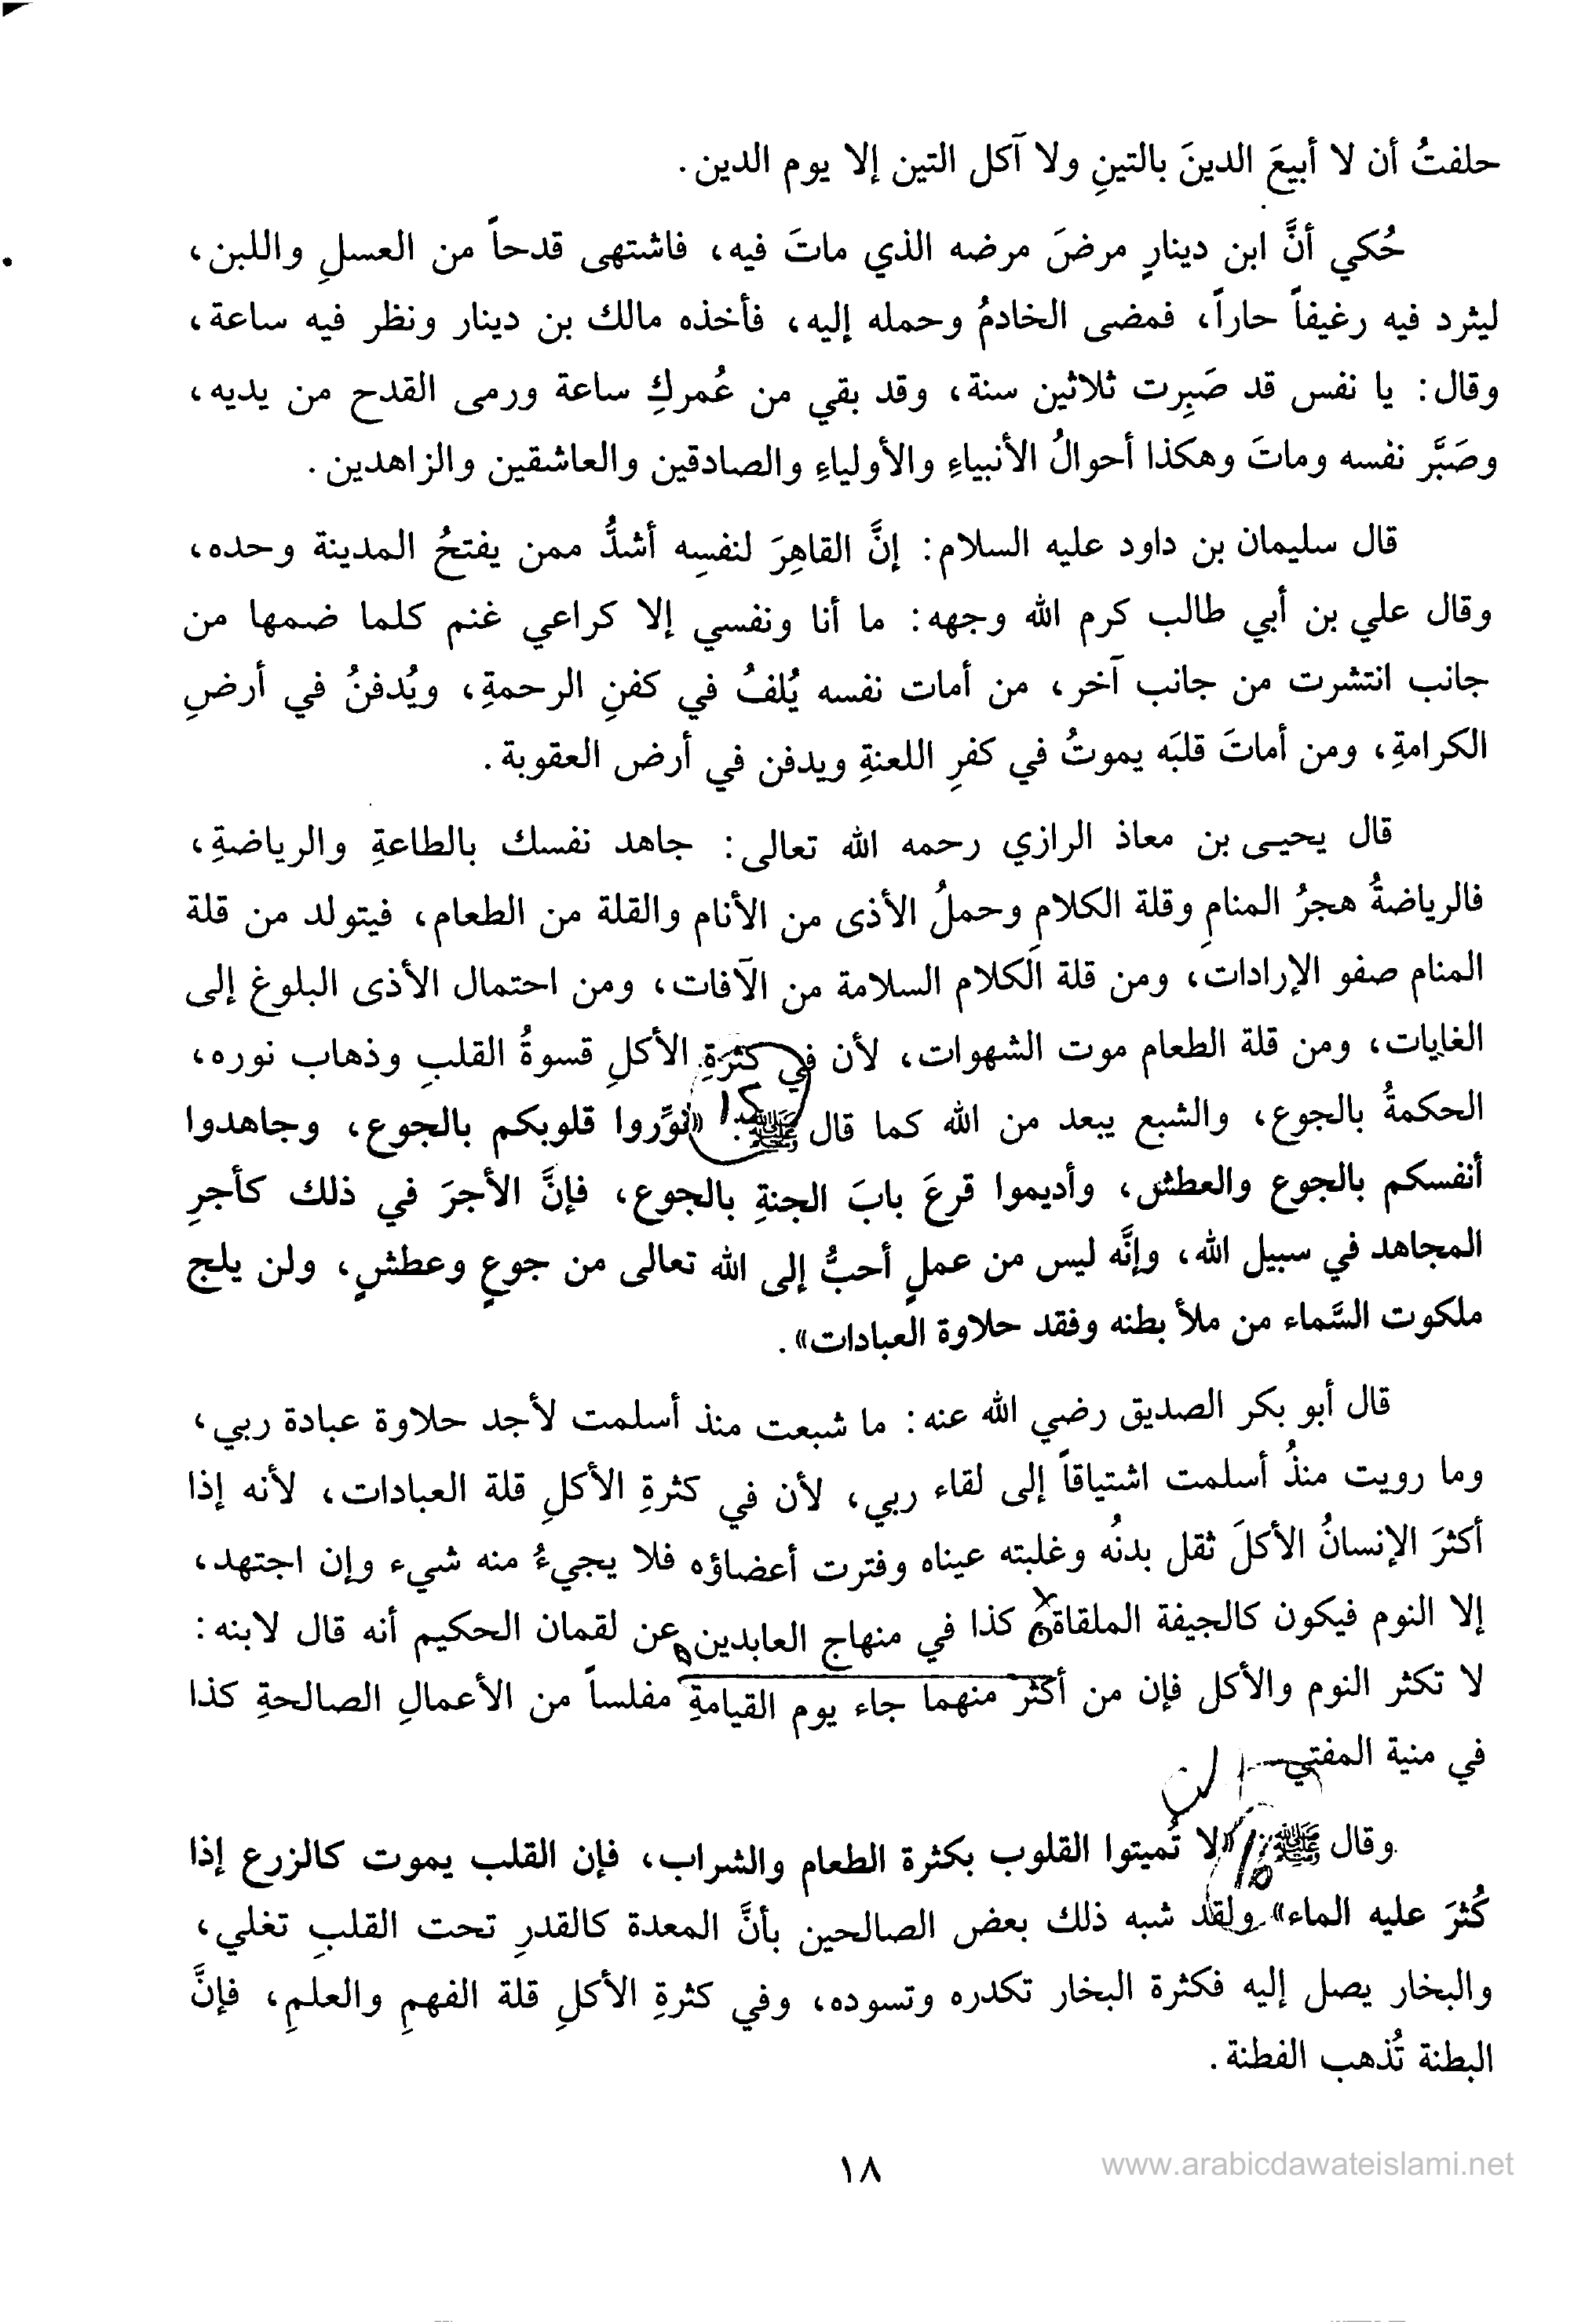 حلفتُ أن لا أبيعَ الدينَ بالتينِ ولا آكل التين إلا يوم الدين.
حُكي أنَّ ابن دينارٍ مرضَ مرضه الذي ماتَ فيه، فاشتهى قدحاً من العسلِ واللبن،
ليثرد فيه رغيفاً حاراً، فمضى الخادمُ وحمله إليه، فأخذه مالك بن دينار ونظر فيه ساعة،
وقال: يا نفس قد صَبِرت ثلاثين سنة، وقد بقي من عُمركِ ساعة ورمى القدح من يديه،
وصَبَّر نفسه وماتَ وهكذا أحوالُ الأنبياءِ والأولياءِ والصادقين والعاشقين والزاهدين.
قال سليمان بن داود عليه السلام: إنَّ القاهِرَ لنفسِه أشدُّ ممن يفتحُ المدينة وحده،
وقال علي بن أبي طالب كرم الله وجهه: ما أنا ونفسي إلا كراعي غنم كلما ضمها من
جانب انتشرت من جانب آخر، من أمات نفسه يُلفُ في كفنِ الرحمةِ، ويُدفنُ في أرضِ
الكرامةِ، ومن أماتَ قلبَه يموتُ في كفرِ اللعنةِ ويدفن في أرض العقوبة.
قال يحيى بن معاذ الرازي رحمه الله تعالى: جاهد نفسك بالطاعةِ والرياضةِ،
فالرياضةُ هجرُ المنامِ وقلة الكلامِ وحملُ الأذى من الأنام والقلة من الطعام، فيتولد من قلة
المنام صفو الإرادات، ومن قلة الكلام السلامة من الآفات، ومن احتمال الأذى البلوغ إلى
الغايات، ومن قلة الطعام موت الشهوات، لأن في كثرَةِ الأكلِ قسوةُ القلبِ وذهاب نوره،
الحكمةُ بالجوع، والشبع يبعد من الله كما قال ﷺ: «نوِّروا قلوبكم بالجوع، وجاهدوا
أنفسكم بالجوع والعطش، وأديموا قرعَ بابَ الجنةِ بالجوع، فإنَّ الأجرَ في ذلك كأجرِ
المجاهد في سبيل الله، وإنَّه ليس من عملٍ أحبُّ إلى الله تعالى من جوعٍ وعطشٍ، ولن يلج
ملكوت السَّماء من ملأ بطنه وفقد حلاوة العبادات».
قال أبو بكر الصديق رضي الله عنه: ما شبعت منذ أسلمت لأجد حلاوة عبادة ربي،
وما رويت منذُ أسلمت اشتياقاً إلى لقاء ربي، لأن في كثرةِ الأكلِ قلة العبادات، لأنه إذا
أكثرَ الإنسانُ الأكلَ ثقل بدنُه وغلبته عيناه وفترت أعضاؤه فلا يجيءُ منه شيء وإن اجتهد،
إلا النوم فيكون كالجيفة الملقاة كذا في منهاج العابدين عن لقمان الحكيم أنه قال لابنه:
لا تكثر النوم والأكل فإن من أكثر منهما جاء يوم القيامةِ مفلساً من الأعمالِ الصالحةِ كذا
في منية المفتي
وقال ﷺ: «لا تُميتوا القلوب بكثرة الطعام والشراب، فإن القلب يموت كالزرع إذا
كُثرَ عليه الماء» ولقد شبه ذلك بعض الصالحين بأنَّ المعدة كالقدرِ تحت القلبِ تغلي،
والبخار يصل إليه فكثرة البخار تكدره وتسوده، وفي كثرةِ الأكلِ قلة الفهمِ والعلمِ، فإنَّ
البطنة تُذهب الفطنة.
١٨
www.arabicdawateislami.net